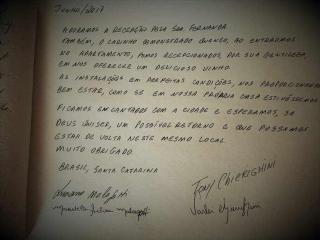 JUNHO/2017
ADORAMOS A RECEPÇÃO PELA SRA. FERNANDA.
TAMBÉM, O CARINHO DEMONSTRADO QUANDO, AO ENTRARMOS
NO APARTAMENTO, FOMOS RECEPCIONADOS, POR SUA GENTILEZA,
EM NOS OFERECER UM DELICIOSO VINHO.
AS INSTALAÇÕES EM PERFEITAS CONDIÇÕES, NOS PROPORCIONARAM
BEM ESTAR, COMO SE EM NOSSA PRÓPRIA CASA ESTIVÉSSEMOS.
FICAMOS ENCANTADOS COM A CIDADE E ESPERAMOS, SE
DEUS QUISER, UM POSSÍVEL RETORNO E QUE POSSAMOS
ESTAR DE VOLTA NESTE MESMO LOCAL.
MUITO OBRIGADO.
BRASIL, SANTA CATARINA
TONY CHIORIGHINI